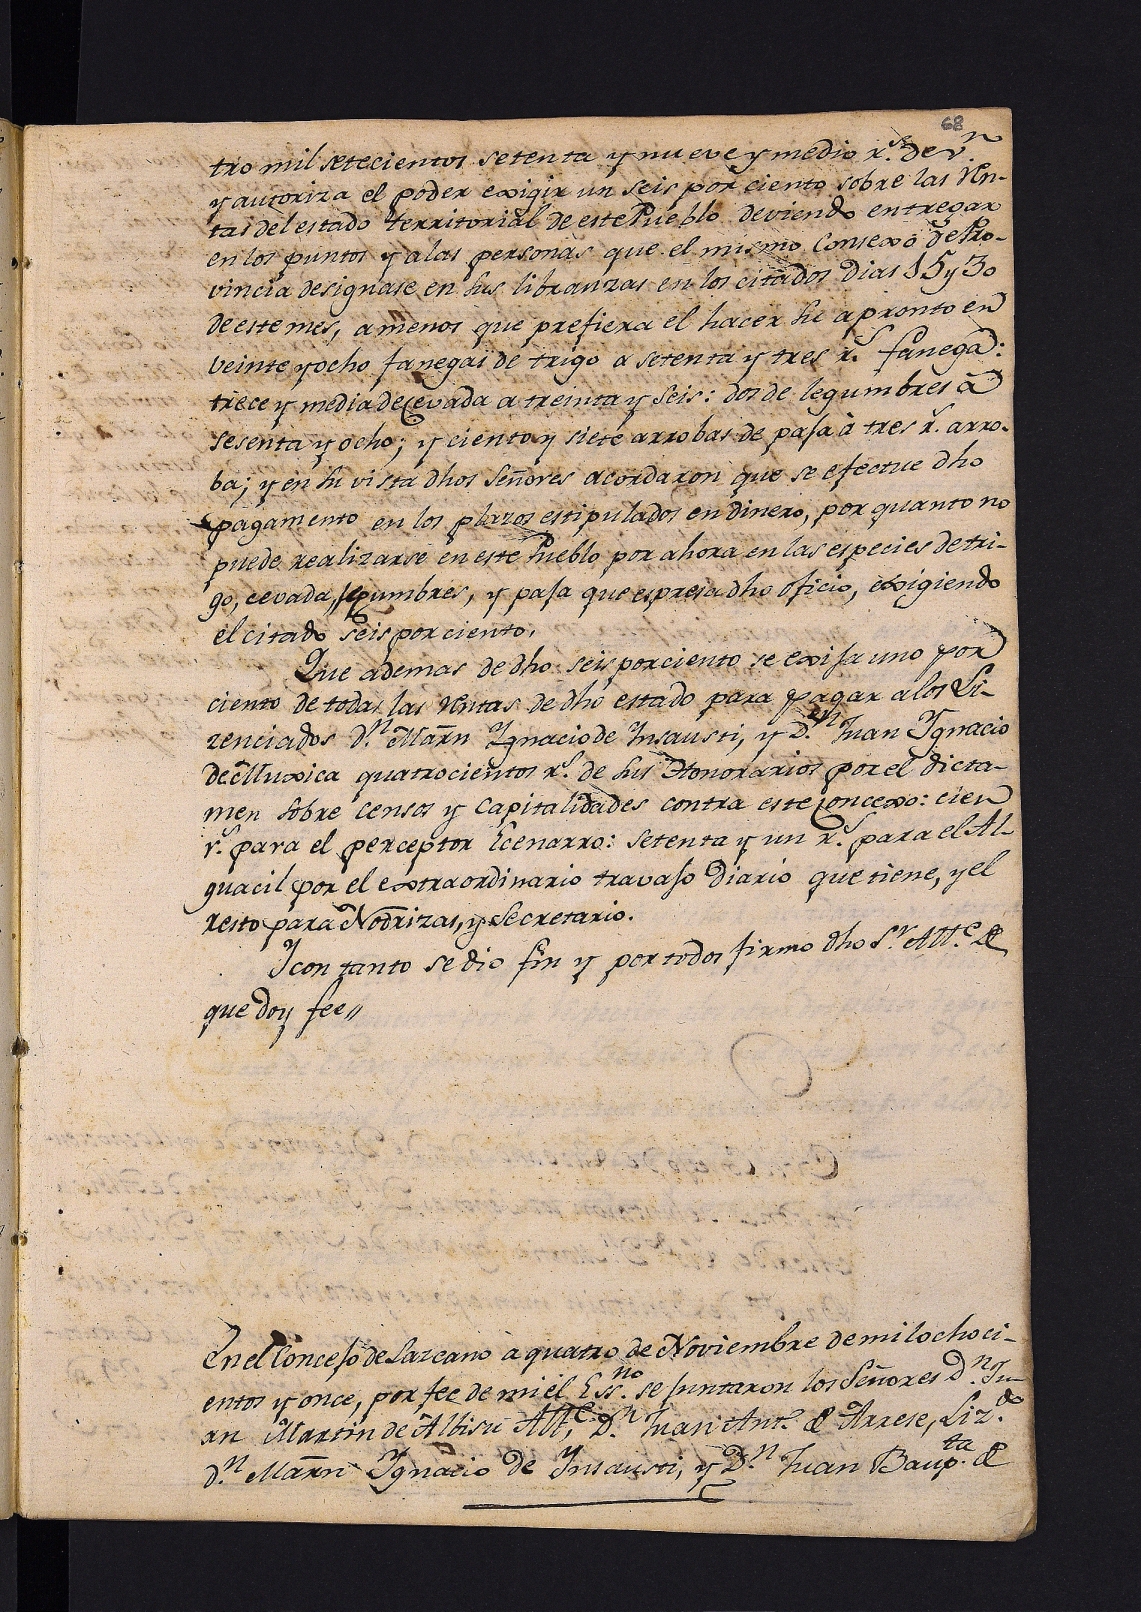 68
tro mil setecientos setenta y nueve y medio r.s de v.n
y autoriza el poder exigir un seis por ciento sobre las Ren-
tas del estado territorial de este Pueblo deviendo entregar
en los puntos y alas personas que el mismo Consexo de Pro-
vincia designase en sus libranzas en los citados dias 15 y 30
de este mes, amenos que prefiera el hacer su apronto en
veinte y ocho fanegas de trigo a setenta y tres r.s fanega:
trece y media de Cevada a treinta y seis: dos de legumbres à
sesenta y ocho; y ciento y siete arrobas de paja à tres r.s arro-
ba; y en su vista dhos Señores acordaron que se efectue dho
pagamento en los plazos estipulados en dinero, por quanto no
puede realizarse en este Pueblo por ahora en las especies de tri-
go, cevada, legumbres, y paja que espresa dho oficio, exigiendo
el citado seis por ciento.
Que ademas de dho seis por ciento se exija uno por
ciento de todas las Rentas de dho estado para pagar a los Li-
zenciados D.n Marn Ygnacio de Insausti, y D.n Juan Ygnacio
de Muxica quatrocientos r.s de sus Honorarios por el dicta-
men sobre censos y capitalidades contra este Concexo: cien
r.s para el perceptor Ecenarro: setenta y un r.s para el Al-
guacil por el extraordinario travajo diario que tiene, y el
resto para Nodrizas, y Secretario.
Y con tanto se dio fin y por todos firmo dho S.r Alt.e de
que doy fee,,
En el Concejo de Lazcano à quatro de Noviembre de mil ochoci-
entos y once, por fee de mi el Ess.no se juntaron los Señores D.n Ju-
an Martin de Albisu Alt.e, D.n Juan Ant.o de Arrese, Liz.do
D.n Marn Ygnacio de Insausti, y D.n Juan Baup.ta de